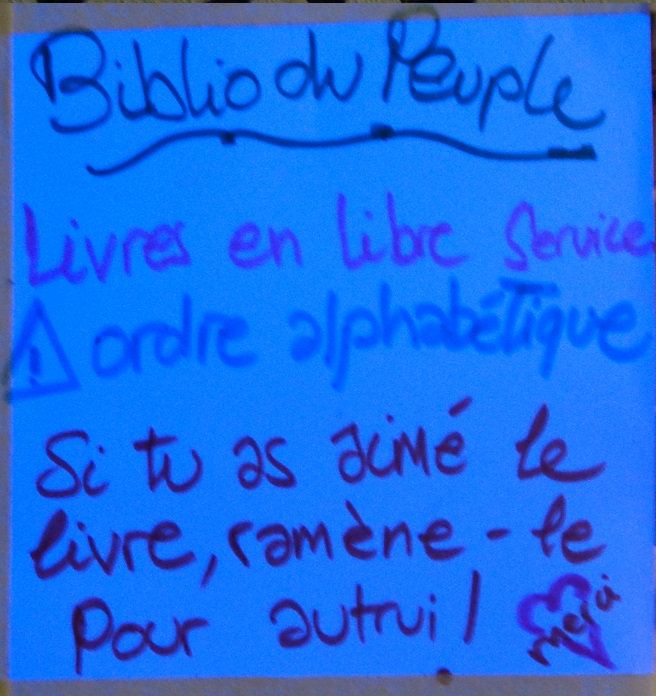 Biblio du Peuple
Livres en libre Service
! ordre alphabétique
Si tu as aimé le
livre, ramène-le
Pour autrui !
Merci